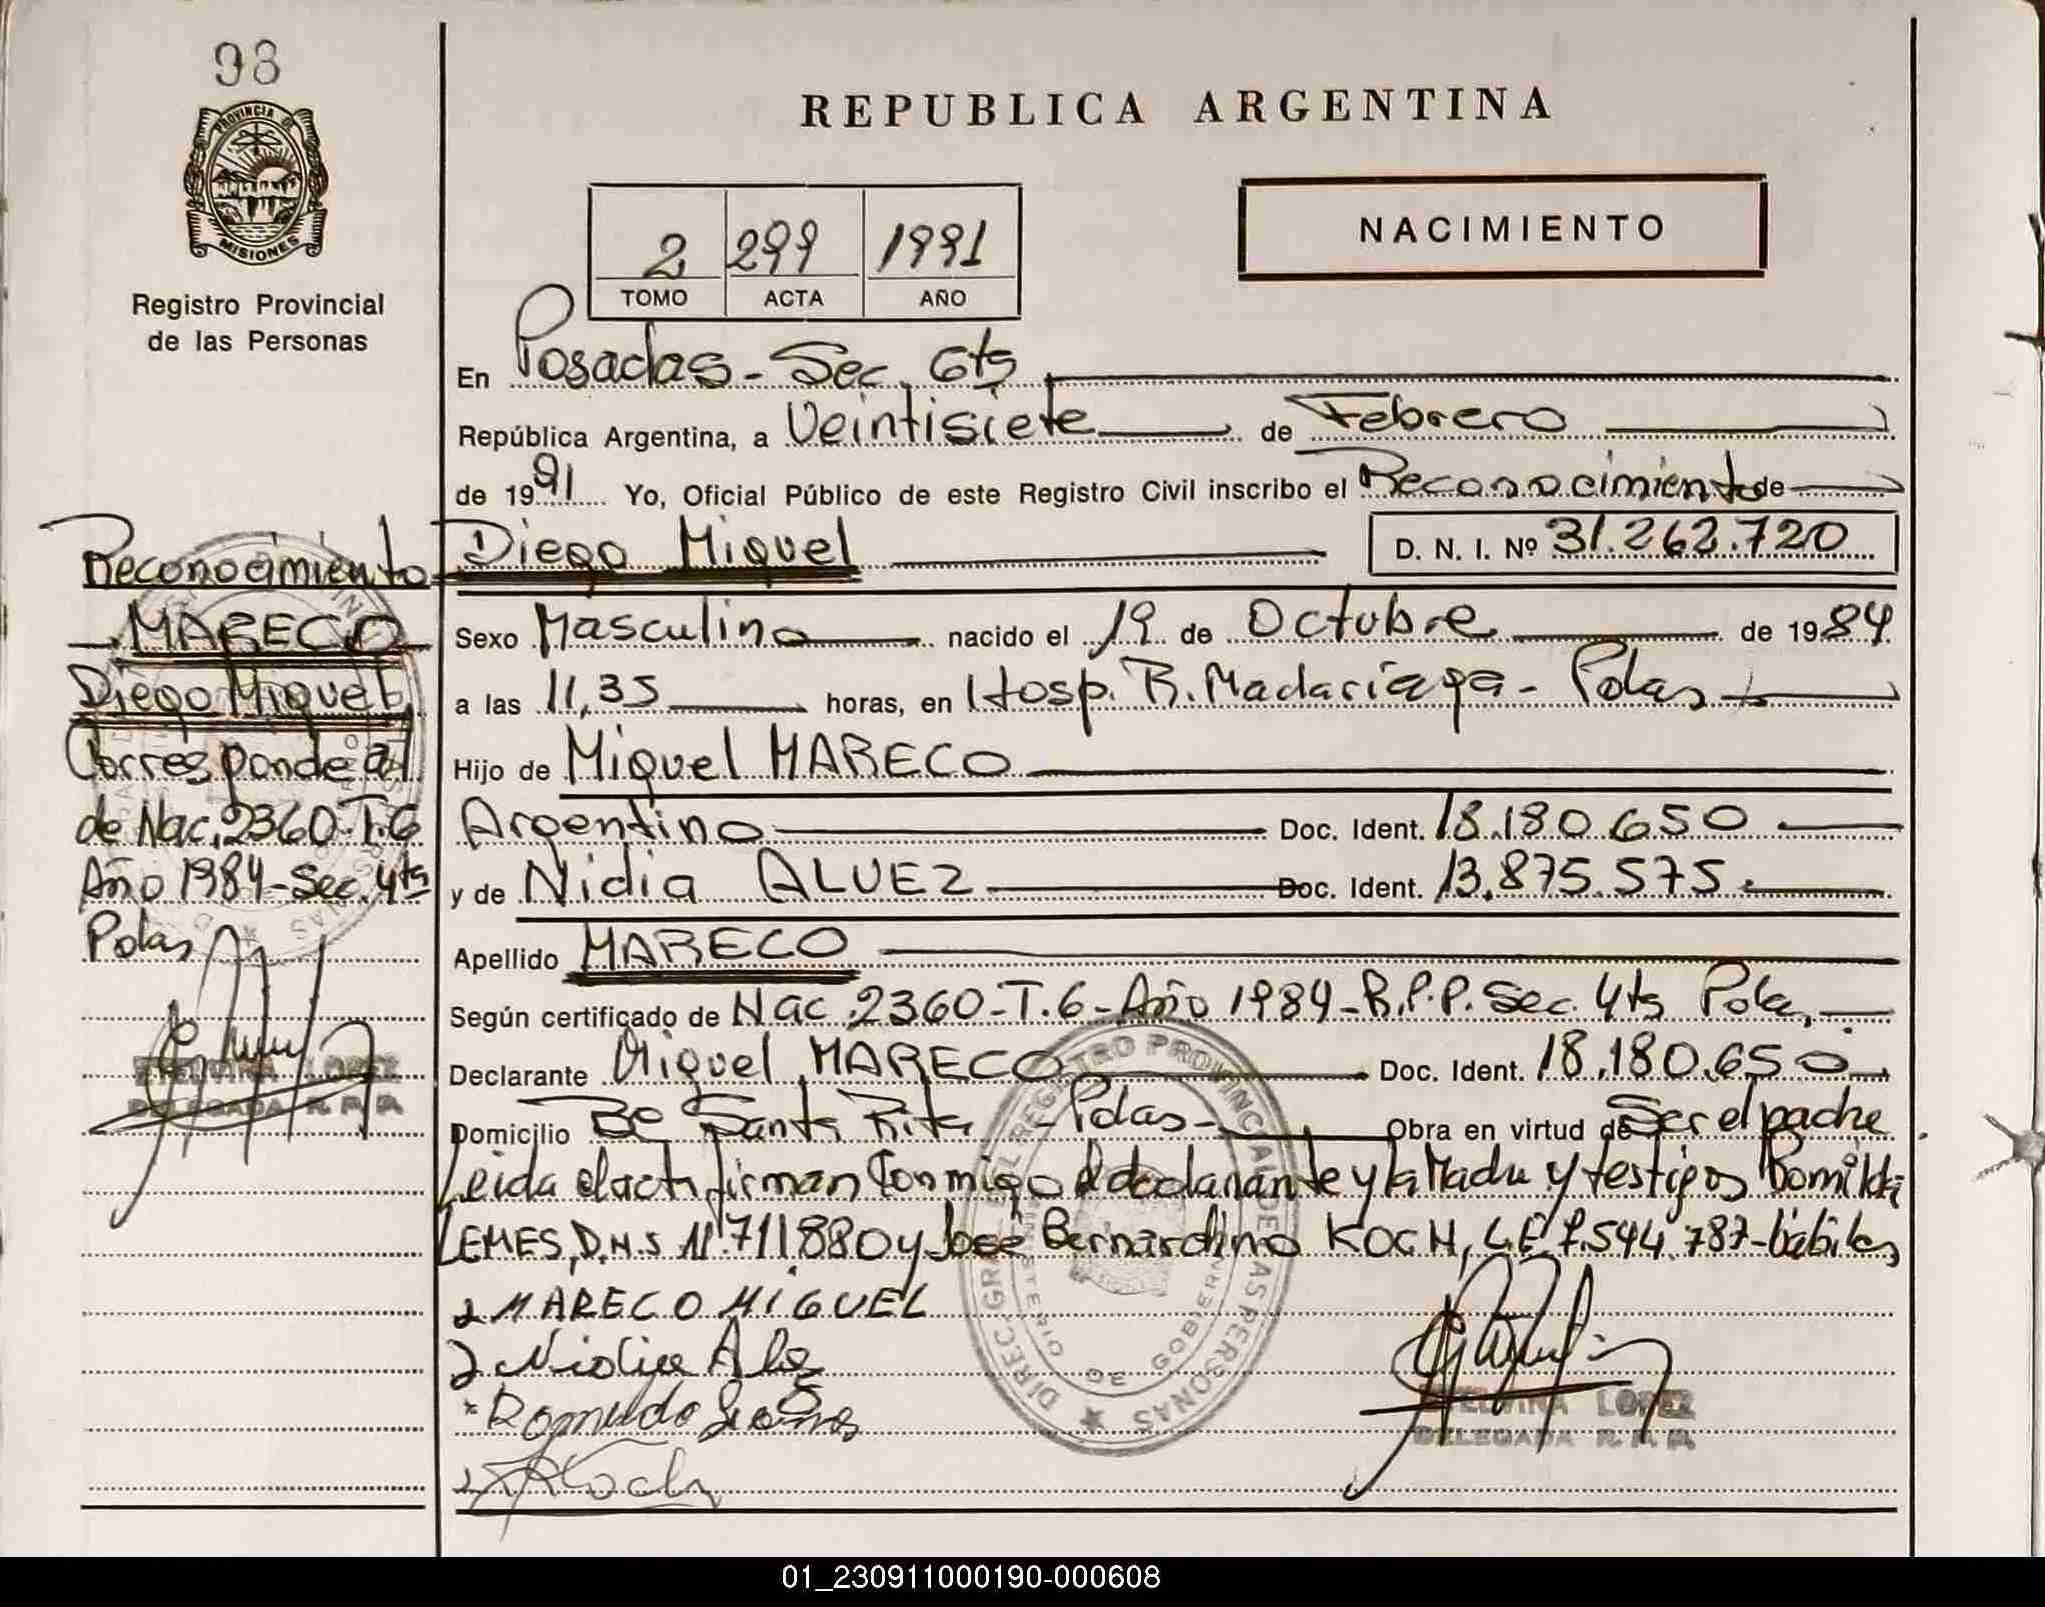 98
PROVINCIA DE
MISIONES
Registro Provincial
de las Personas
REPUBLICA ARGENTINA
NACIMIENTO
2 299 1991
TOMO ACTA AÑO
En Posadas - Sec. 6ta
República Argentina, a Veintisiete de Febrero
de 1991 Yo, Oficial Público de este Registro Civil inscribo el Reconocimiento de
Diego Miguel D. N. I. Nº 31.262.720
Sexo Masculino nacido el 19 de Octubre de 1984
a las 11,35 horas, en Hosp. R. Madariaga - Pdas
Hijo de Miguel MARECO
Argentino Doc. Ident. 18.180.650
y de Nidia ALVEZ Doc. Ident. 13.875.575
Apellido MARECO
Según certificado de Nac. 2360 - T. 6 - Año 1984 - R.P.P. Sec. 4ta Pdas
Declarante Miguel MARECO Doc. Ident. 18.180.650
Domicilio Bº Santa Rita - Pdas - Obra en virtud de Ser el padre
Leida el acta firman Conmigo el declarante y la Madre y testigos
LEMES, D.N.I 11.711.880 y José Bernardino KOCH, L.E 7.544.787 - hábiles
MARECO MIGUEL
Koch
Reconocimiento
MARECO
Diego Miguel
Corresponde al
de Nac. 2360 - T. 6
Año 1984 - Sec. 4ta
Pdas
ETELVINA LOPEZ
DELEGADA R. P. P.
DIREC. GRAL. DEL REGISTRO PROVINCIAL DE LAS PERSONAS
MINISTERIO DE GOBIERNO
ETELVINA LOPEZ
DELEGADA R. P. P.
01_230911000190-000608